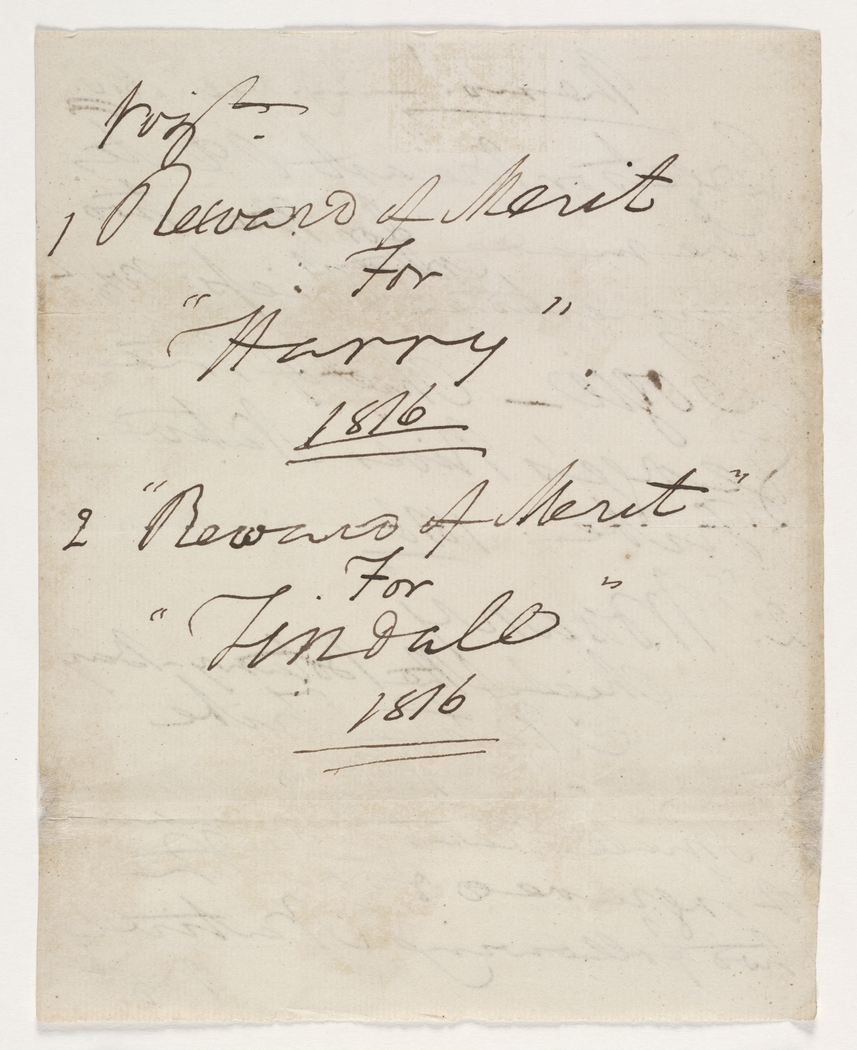 1 Reward of Merit
For
"Harry"
1816
2 "Reward of Merit"
For
"Tindall"
1816